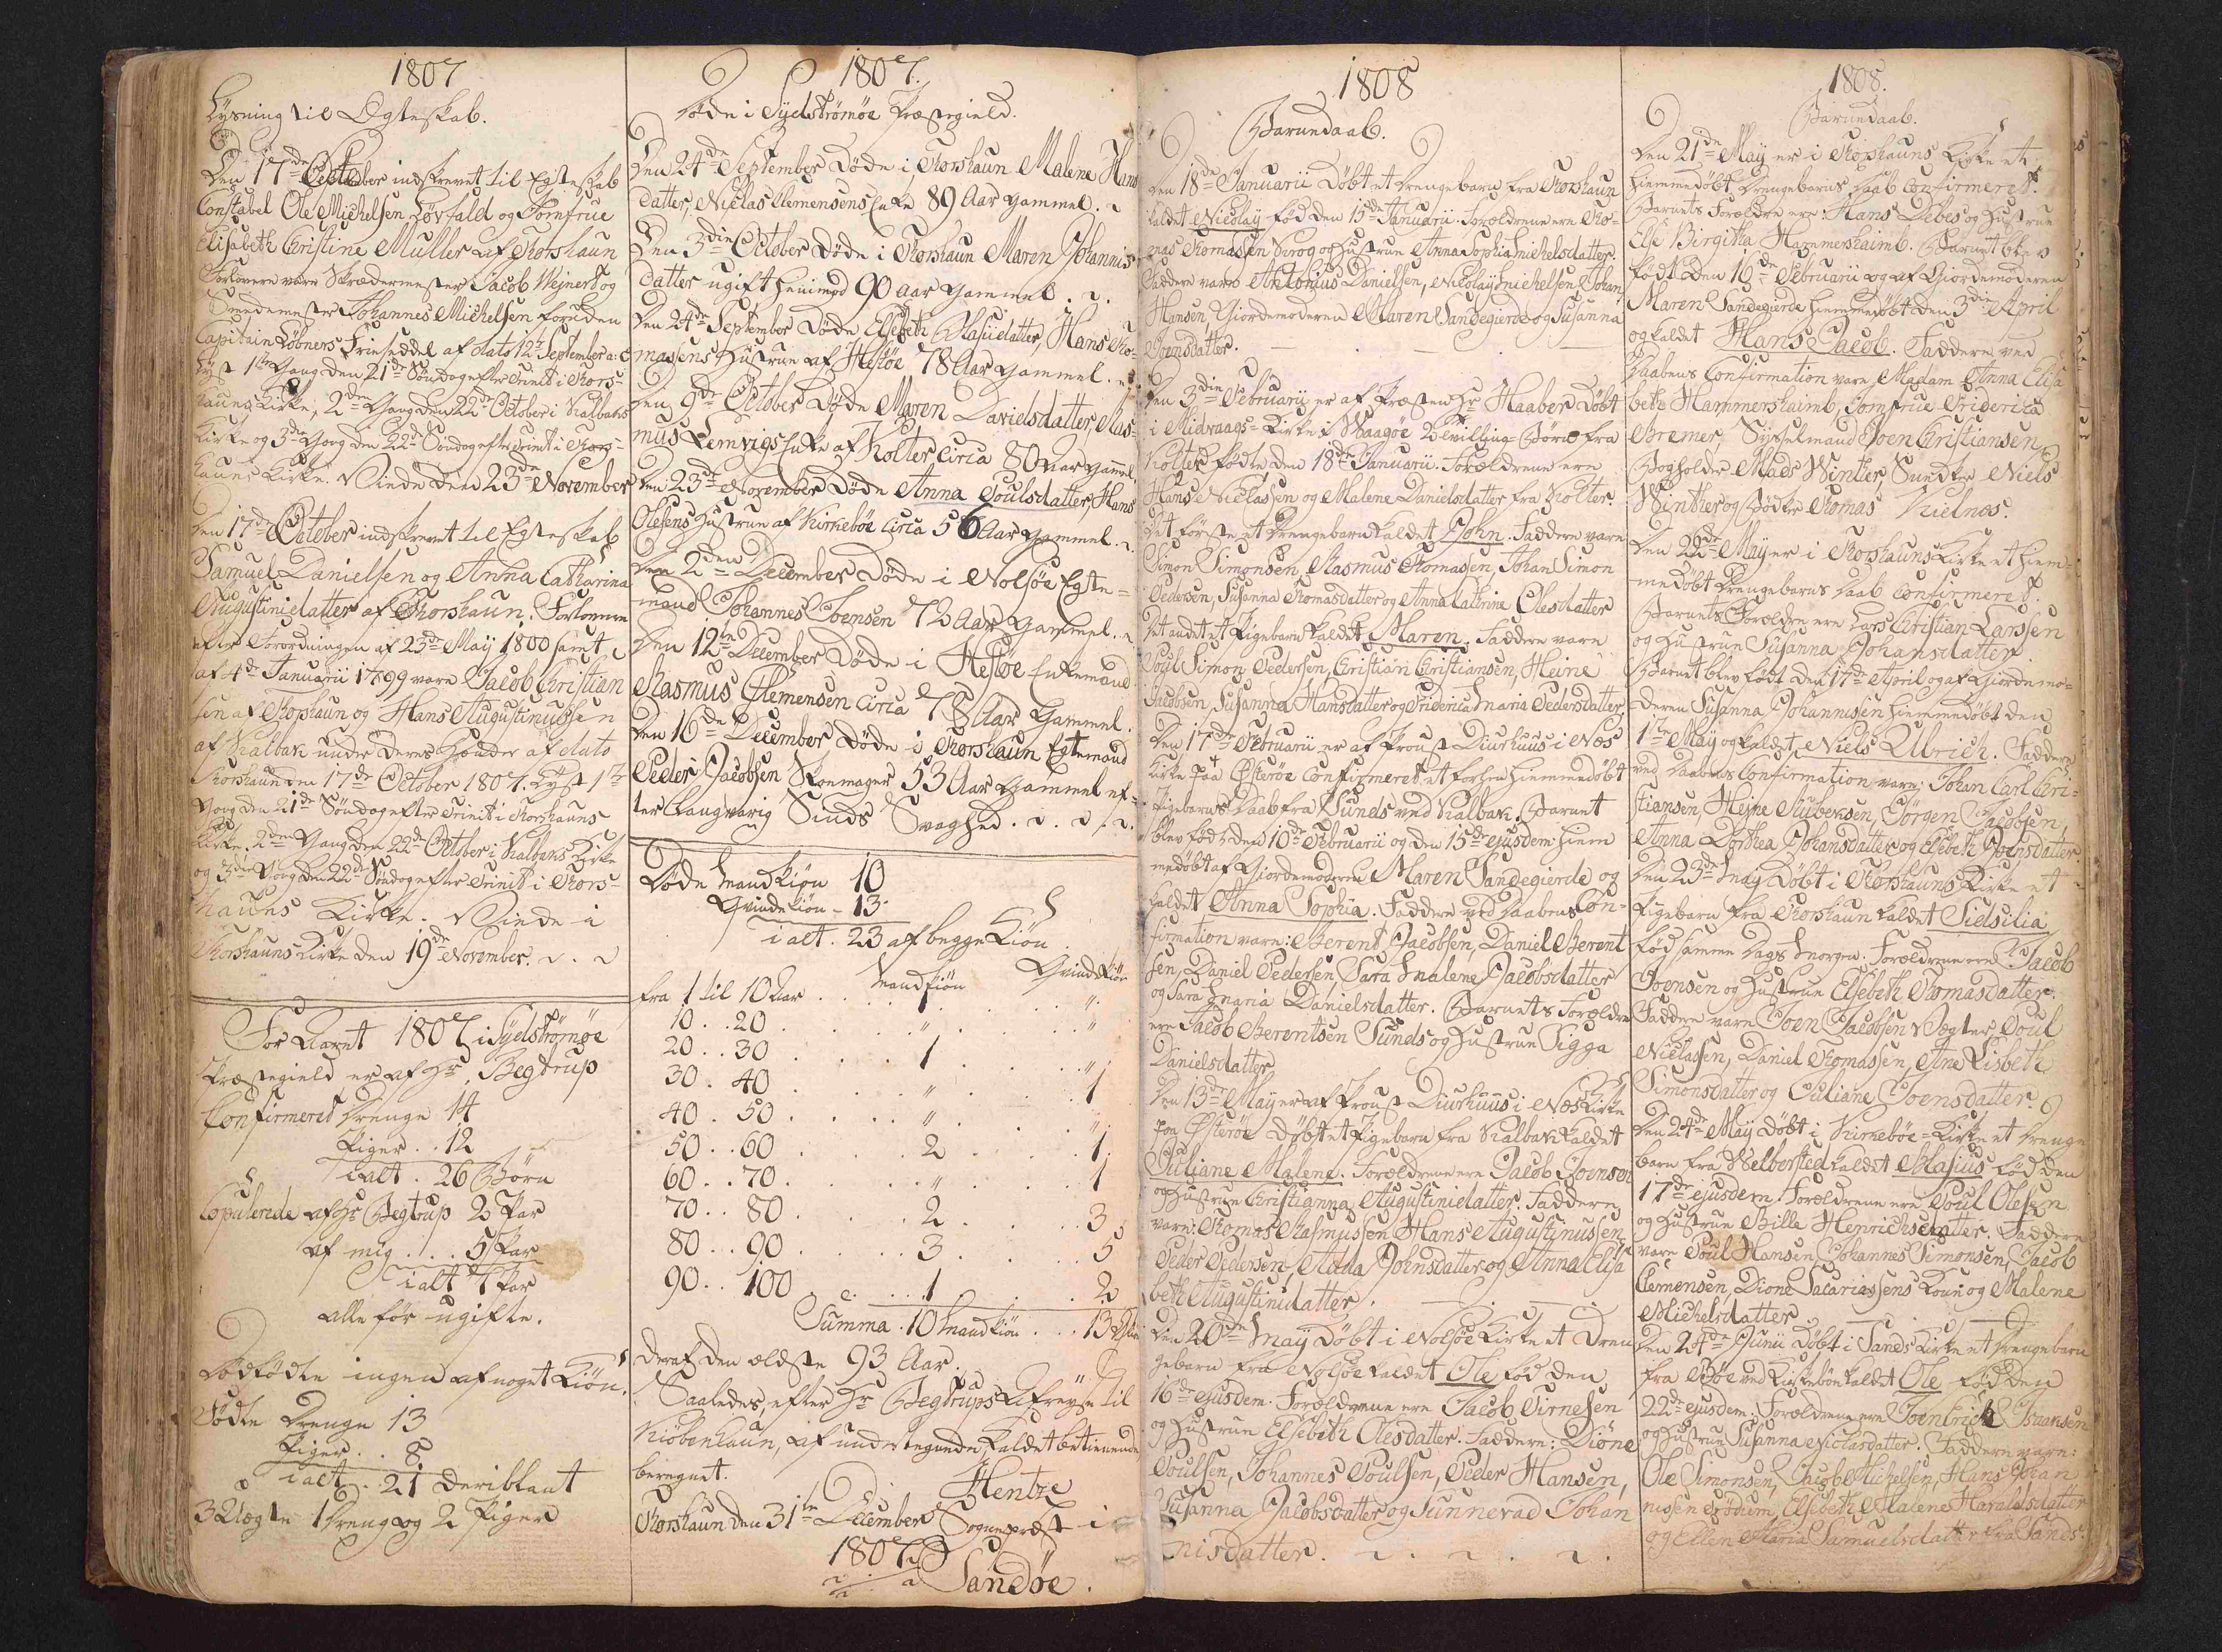 1807
Lysning til Ægteskab.
Den 17de October indskrevet til Egteskab
Constabel Ole Michelsen Lövfald og Jomfrue
Elisabeth Christine Muller af Thorshaun
Forlovere vare Skrædermester Jacob Wejnert og
Smedemester Johannes Michelsen foruden
Capitain Löbners Friseddel af dato 12te September a:c:
Lyst 1ste Gang den 21de Söndag efter Trinit: i Thors-
hauns Kirke, 2den Gang den 22de October i Kalbaks
Kirke og 3die Gang den 22de Söndag efter Trinit: i Thors-
hauns Kirke. Viede den 23de November
Den 17de October indskrevet til Egteskab
Samuel Danielsen og Anna Catharina
Augustinidatter af Thorshaun. Forlovere
efter Forordningen af 23de May 1800 samt
af 4de Januarii 1799 vare Jacob Christian
sen af Thorshaun og Hans Augustinussen
af Kalbak under deres Hænder af dato
Thorshaun den 17de October 1807. Lyst 1te
Gang den 21de Söndag efter Trinit: i Thorshauns
Kirke. 2den Gang den 22de October i Kalbaks Kirke
og 3die Gang den 22de Söndag efter Trinit: i Thors-
hauns Kirke. Viede i
Thorshauns Kirke den 19de November.
For Aaret 1807 i Sydströmöe
Præstegield er af Hr. Begtrup
Confirmeret Drenge 14
Piger .. 12
ialt . 26 Börn
Copulerede af Hr Begtrup 2 Par
af mig ... 5 Par
ialt 7 Par
alle för ugifte.
Dödfödte ingen af noget Kiön.
Födte Drenge 13
Piger .. 8.
ialt . 21 deriblant
3 Uægte 1 Dreng og 2 Piger
1807.
Döde i Sydströmöe Præstegield.
Den 24de September Döde i Thorshaun Malene Hans
datter, Niclas Clemensens Enke 89 Aar gammel.
Den 3die October Döde i Thorshaun Maren Johannis
datter ugift henimod 90 Aar gammel.
Den 24de September Döde Elsebeth Clasiidatter, Hans Tho-
massens Hustrue af Hestöe 78 Aar gammel.
Den 9de October Döde Maren Danielsdatter, Ras-
mus Lemvigs Enke af Kolter circa 80 Aar gammel
Den 23de November Döde Anna Poulsdatter, Hans
Olesens Hustrue af Kirkeböe circa 56 Aar gammel.
Den 2den December Döde i Nolsöe Egte-
mand Johannes Joensen 72 Aar gammel.
Den 12te December Döde i Hestöe Enkemand
Rasmus Clemensen circa 78 Aar gammel.
Den 16de December Döde i Thorshaun Egtemand
Peder Jacobsen Skomager 53 Aar gammel ef-
ter langvarig Sinds Svaghed.
Döde Mandkiön 10
Qvindekiön - 13
ialt . 23 af begge Kiön
Mandkiön Qvindekiön
fra 1 til 10 Aar . . 1 . . "
10 .. 20 . . " . . "
20 .. 30 . . 1 . . "
30 . 40 . . " . . 1
40 . 50 . . " . . "
50 .. 60 . . 2 . . 1
60 .. 70 . . " . . 1
70 .. 80 . . 2 . . 3
80 .. 90 . . 3 . . 5
90 .. 100 . . 1 . . 2
Summa . 10 Mandkiön . . 13
deraf den ældste 93 Aar.
Saaledes, efter Hr Begtrups Afreyse til
Kiöbenhaun, af undertegnede, Kaldet betienende
beregnet.
Hentze
Thorshaun den 31te December Sognepræst i
1807. Sandöe.
1808
Barnedaab.
Den 18de Januarii Döbt et Drengebarn fra Thorshaun
kaldet Nicolay föd den 15de Januarii. Forældrene ere Tho-
mas Thomassen Skrog og Hustrue Anna Sophia Michelsdatter.
Faddere vare Antonius Danielsen, Nicolay Michelsen, Johan
Hansen, Giordemoderen Maren Sandegierde og Susanna
Joensdatter.
Den 3die Februarii er af Præsten Hr Haaber Döbt
i Midvaags-Kirke i Waagöe 2 Tvilling Börn fra
Kolter födte den 18de Januarii. Forældrene ere
Hans Niclassen og Malene Danielsdatter fra Kolter.
Det förste et Drengebarn kaldet John. Faddere vare
Simon Simonsen, Rasmus Thomassen, Johan Simon
Pedersen, Susanna Thomasdatter og Anna Cathrine Olesdatter
Det andet et Pigebarn kaldet Maren. Faddere vare
Poul Simon Pedersen, Christian Christiansen, Heine
Jacobsen, Susanna Hansdatter og Fridericha Maria Pedersdatter
Den 17de Februarii er af Proust Diurhuus i Nes
Kirke paa Österöe Confirmeret et forhen hiemmedöbt
Pigebarns Daab fra Sunds ved Kalbak. Barnet
blev föd den 10de Februarii og den 15de ejusdem hiem
medöbt af Giordemoderen Maren Sandegierde og
kaldet Anna Sophia. Faddere ved Daabens Con-
firmation vare: Berent Jacobsen, Daniel Berent
sen, Daniel Pedersen, Sara Malene Jacobsdatter
og Sara Maria Danielsdatter. Barnets Forældre
ere Jacob Berentsen Sunds og Hustrue Sigga
Danielsdatter
Den 13de May er af Proust Diurhuus i Nes Kirke
paa Österöe Döbt et Pigebarn fra Kalbak kaldet
Juliane Malene. Forældrene ere Jacob Joensen
og Hustrue Christianna Augustinidatter. Faddere
vare: Thomas Rasmussen, Hans Augustinussen
Peder Pedersen, Adda Johnsdatter og Anna Elisa
beth Augustinidatter.
Den 20de May Döbt i Nolsöe Kirke et Dren
gebarn fra Nolsöe kaldet Ole föd den
16de ejusdem. Forældrene ere Jacob Virnesen
og Hustrue Elsebeth Olesdatter. Faddere: Dione
Poulsen, Johannes Poulsen, Peder Hansen,
Susanna Jacobsdatter og Sunnevad Johan
nisdatter.
1808.
Barnedaab.
Den 21de May er i Thorshauns Kirke et
hiemmedöbt Drengebarns Daab Confirmeret.
Barnets Forældre ere: Hans Debes og Hustrue
Else Birgitha Hammershaimb. Barnet blev
föd den 16de Februarii og af Giordemoderen
Maren Sandegierde hiemmedöbt den 3die April
og kaldet Hans Jacob. Faddere ved
Daabens Confirmation vare Madam Anna Elisa
beth Hammershaimb, Jomfrue Fridericha
Bremer, Sysselmand Joen Christiansen,
Bogholder Mads Winther, Niels
Winther og Bödker Thomas Kielnæs.
Den 22de May er i Thorshauns Kirke et hiem-
medöbt Drengebarns Daab Confirmeret.
Barnets Forældre ere Lars Christian Larssen
og Hustrue Susanna Johansdatter
Barnet blev föd den 17de April og af Giordemo-
deren Susanna Johannisen hiemmedöbt den
1te May og kaldet Niels Ulrich. Faddere
ved Daabens Confirmation vare: Johan Carl Chri-
stiansen, Hejne Rubeksen, Jörgen Jacobsen,
Anna Dorthea Johansdatter og Elsebeth Joensdatter.
Den 23de May Döbt i Thorshauns Kirke et
Pigebarn fra Thorshaun kaldet Sidsilia
föd samme Dags Morgen. Forældrene ere Jacob
Joensen og Hustrue Elsebeth Thomasdatter.
Faddere vare Joen Jacobsen Vægter, Poul
Niclassen, Daniel Thomassen, Ane Lisbeth
Simonsdatter og Juliane Joensdatter
Den 24de May Döbt i Kirkeböe-Kirke et Drenge
barn fra Welbersted kaldet Clasius föd den
17de ejusdem. Forældrene ere Poul Olesen
og Hustrue Bille Henrichsdatter. Faddere
vare Poul Hansen, Johannes Simonsen, Jacob
Clemensen, Dione Sacariassens Kone og Malene
Michelsdatter
Den 24de Junii Döbt i Sands Kirke et Drengebarn
fra Böe ved Kirkeböe kaldet Ole föd den
22de ejusdem. Forældrene ere Joen Erich Isaaksen
og Hustrue Susanna Niclasdatter. Faddere vare:
Ole Simonsen, Jacob Michelsen, Hans Johan
nissen Trödum, Elsebeth Malene Haraldsdatter
og Ellen Maria Samuelsdatter fra Sands.